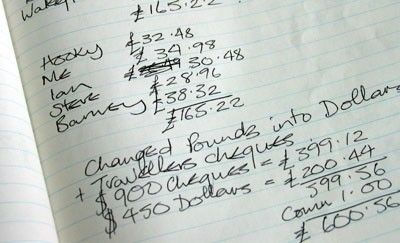 £165.22
Hooky £32.48
Me £34.98
Ian £ 30.48
Steve £28.96
Barney £38.32
£165.22
Changed Pounds into Dollars
+ Travellers cheques.
$900 cheques = £399.12
$450 Dollars = £200.44
599.56
Comm 1.00
£600.56